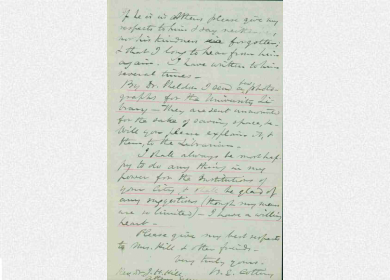 If he is in Athens please give my
respects to him & say neither
nor his kindness are forgotten,
& that I long to hear from him
again. I have written to him
several times –
By Dr. I send two photo-
graphs for the University Li-
brary – They are sent unmounted
for the sake of saving space,
Will you please explain it, &
them, to the Librarian.
I shall always be most hap-
py to do any thing in my
power for the Institutions of
your City, & shall be glad of
any suggestions (though my means
are so limited) – I have a willing
heart –
Please give my best respects
to Mrs. Hill & other friends –
Very truly yours –
Rev. Dr. J. H. Hill